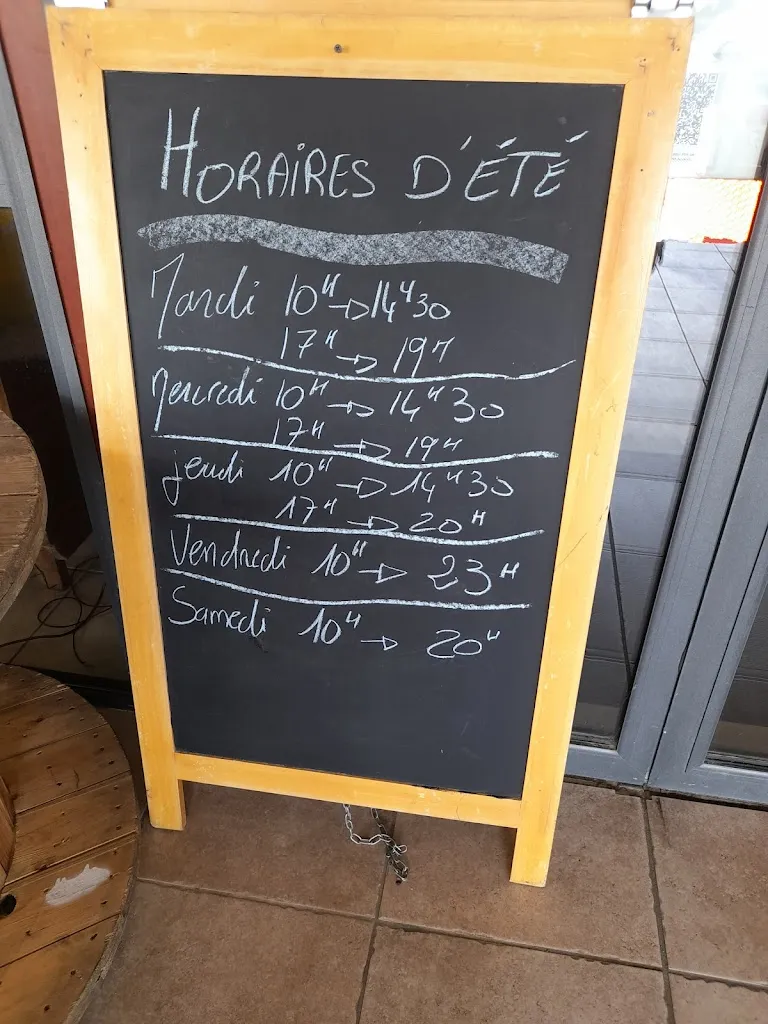 HORAIRES D'ÉTÉ
Mardi 10H → 14H30
17H → 19H
Mercredi 10H → 14H30
17H → 19H
jeudi 10H → 14H30
17H → 20H
Vendredi 10H → 23H
Samedi 10H → 20H